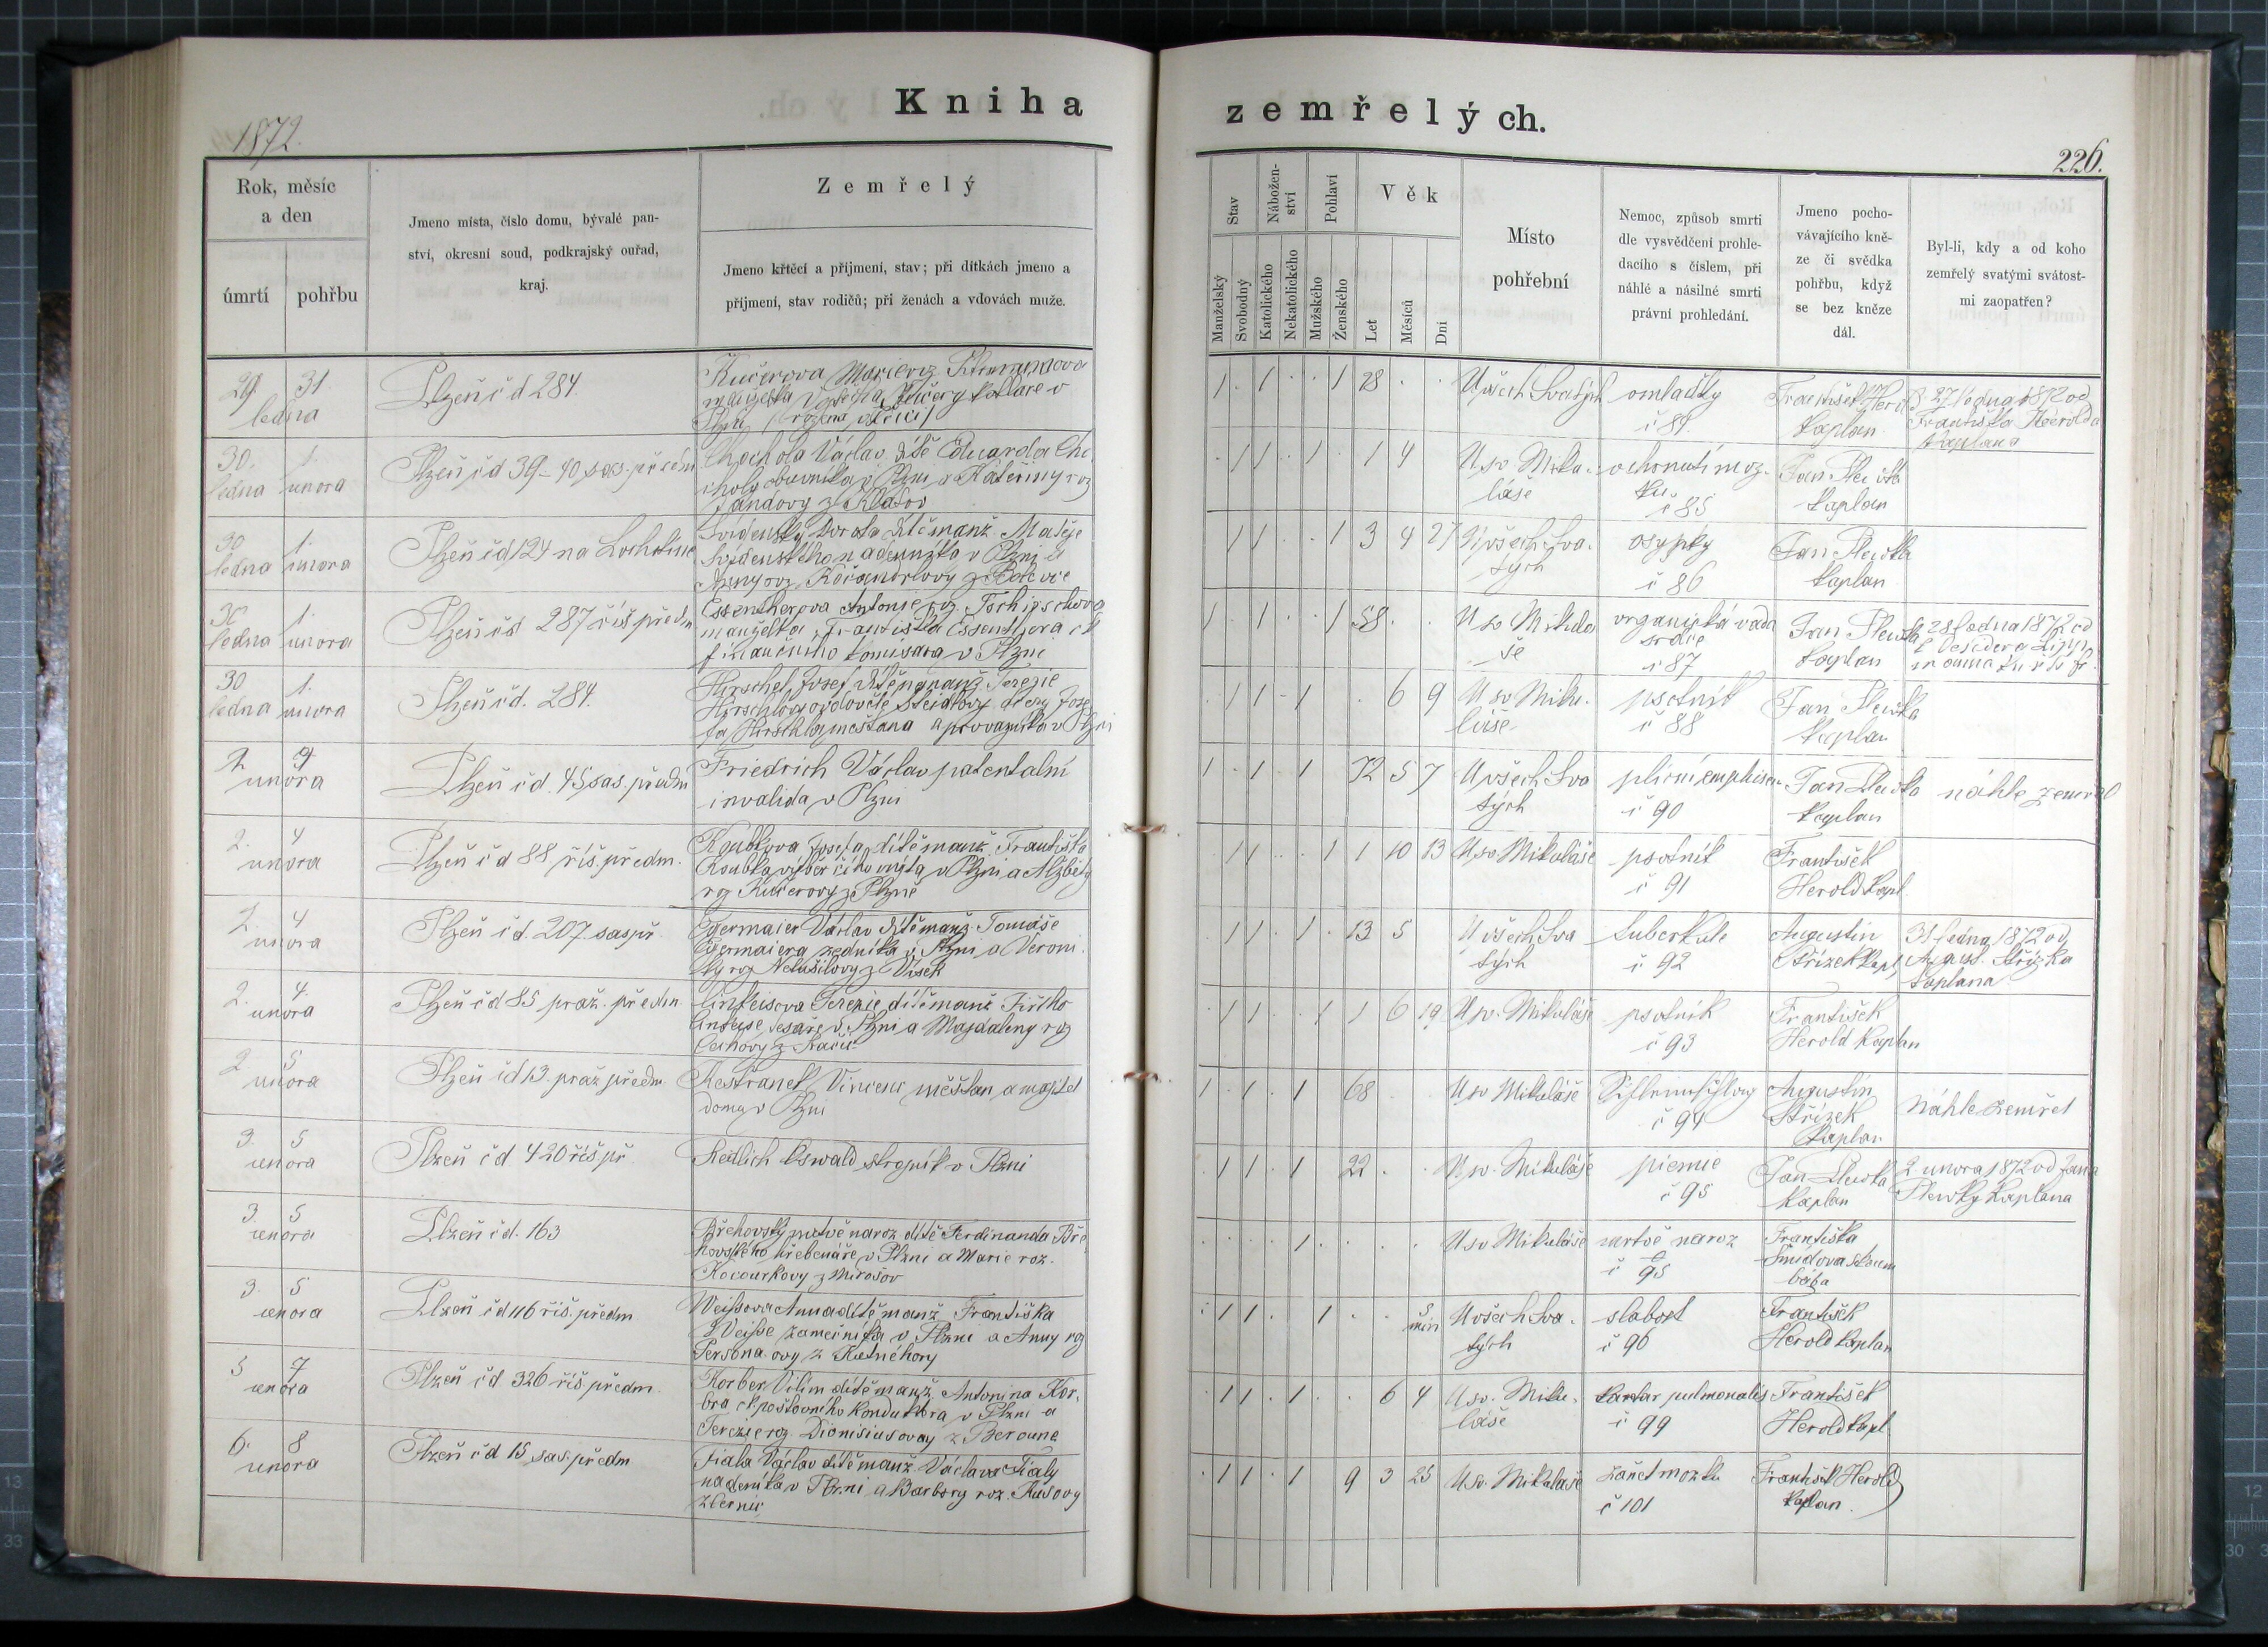 Kniha
zemřelých.
1872.
226.
Rok, měsíc
a den
úmrtí
pohřbu
Jmeno místa, číslo domu, bývalé pan-
ství, okresní soud, podkrajský ouřad,
kraj.
Zemřelý
Jmeno křtěcí a příjmení, stav; při dítkách jmeno a
příjmení, stav rodičů; při ženách a vdovách muže.
Stav
Manželský
Svobodný
Nábožen-
ství
Katolického
Nekatolického
Pohlaví
Mužského
Ženského
Věk
Let
Měsíců
Dní
Místo
pohřební
Nemoc, způsob smrti
dle vysvědčení prohle-
dacího s číslem, při
náhlé a násilné smrti
právní prohledání.
Jmeno pocho-
vávajícího kně-
ze či svědka
pohřbu, když
se bez kněze
dál.
Byl-li, kdy a od koho
zemřelý svatými svátost-
mi zaopatřen?
29. 31.
ledna
Plzeň č d 284.
Kučerova Marie
manželka Kučery kotláře v
Plzni
1 . 1 . . 1 28 . .
U všech Svatých
omladky
č 84
František Herold
kaplan
27 ledna 1872 od
Františka Herolda
kaplana
30. 1.
ledna unora
Plzeň č d 39-40 sas. předm
Chochola Václav dítě Eduarda Cho
choly obuvníka v Plzni a Kateřiny roz
Jandovy z Klatov
. 1 1 . 1 1 4
U sv Miku-
láše
ochrnutí moz-
ku
č 85
Jan Plewka
kaplan
30 1.
ledna unora
Plzeň č d 124 na Lochotíně
Svídenský dítě manž Matěje
Svídenského nadenníka v Plzni a
Anny roz
. 1 1 . . 1 3 4 27
U všech Sva-
tých
osypky
č 86
Jan Plewka
kaplan
30 1.
ledna unora
Plzeň č d 287 říš předm
Essentherova Antonie roz.
manželka Františka Essenthera c k
finančního komisara v Plzni
1 . 1 . . 1 58 . .
U sv Mikula
še
organická vada
srdce
č 87
Jan Plewka
kaplan
28 ledna 1872 od
30 1.
ledna unora
Plzeň č d. 284.
Hirschel Josef dítě nemanž. Terezie
Hirschlovy ovdověle dcery Jose
fa Hirschla měštana a provazníka v Plzni
. 1 1 . 1 . . 6 9
U sv Miku-
láše
psotník
č 88
Jan Plewka
kaplan
2 4
unora
Plzeň č d. 45 sas. předm
Friedrich Václav patentalní
invalida v Plzni
1 . 1 . 1 . 72 5 7
U všech Sva
tých
plicní emphisem
č 90
Jan Plewka
kaplan
náhle zemřel
2. 4
unora
Plzeň č d 88 říš. předm.
Koubkova Josefa dítě manž. Františka
Koubka výběrčího mýta v Plzni a Alžběty
roz Kučerovy z Plzně
. 1 1 . . 1 1 10 13
U sv Mikuláše
psotník
č 91
František
Herold kapl.
2. 4
unora
Plzeň č d. 207. sas př
Egermaier Václav dítě manž. Tomáše
Egermaiera zedníka v Plzni a Veroni
ky roz Netušilovy z Vísek
. 1 1 . 1 . 13 5
U všech Sva
tých
tuberkule
č 92
Augustin
Střízek kapl
31 ledna 1872 od
Aug. Střízka
kaplana
2. 4.
unora
Plzeň č d 85 praž. předm
Linkeisova Terezie dítě manž Jiřího
Linkeise tesaře v Plzni a Magdaleny roz
. 1 1 . . 1 1 6 19
U sv. Mikuláše
psotník
č 93
František
Herold kaplan
2 5
unora
Plzeň č d 13. praž předm
Kestřanek Vincenc měštan a majitel
domu v Plzni
1 . 1 . 1 . 68
U sv Mikuláše
č 94
Augustin
Střízek
kaplan
Náhle zemřel
3. 5
unora
Plzeň č d 420 říš př
Redlich Oswald strojník v Plzni
. 1 1 . 1 . 22 . .
U sv. Mikuláše
piemie
č 95
Jan Plewka
kaplan
2 unora 1872 od Jana
Plewky kaplana
3. 5
unora
Plzeň č d. 163
Břehovský mrtvě naroz dítě Ferdinanda Bře
hovského hřebenáře v Plzni a Marie roz.
Kocourkovy z Mirošov
. . . . 1 . . . .
U sv Mikuláše
mrtvě naroz
č 95
Františka
Šmidova zkoum
bába
3. 5
unora
Plzeň č d 116 říš. předm
Weissova Anna dítě manž Františka
Weisse zamečníka v Plzni a Anny roz
Persona ovy z Kutnéhory
. 1 1 . . 1 . . 5
min
U všech Sva-
tých
slabost
č 96
František
Herold kaplan
5 7
unora
Plzeň č d 326 říš předm.
Korber Vilím dítě manž. Antonína Kor-
bra ck poštovního konduktora v Plzni a
Terezie roz. Dionisiusovy z Berouna
. 1 1 . 1 . . 6 4
U sv. Miku-
láše
katar pulmonalis
č 99
František
Herold kapl.
6. 8
unora
Plzeň č d 15 sas. předm
Fiala Václav dítě manž Václava Fialy
nadeníka v Plzni a Barbory roz. Kusovy
. 1 1 . 1 . 9 3 25
U sv. Mikuláše
zánět mozku
č 101
František Herold
kaplan.